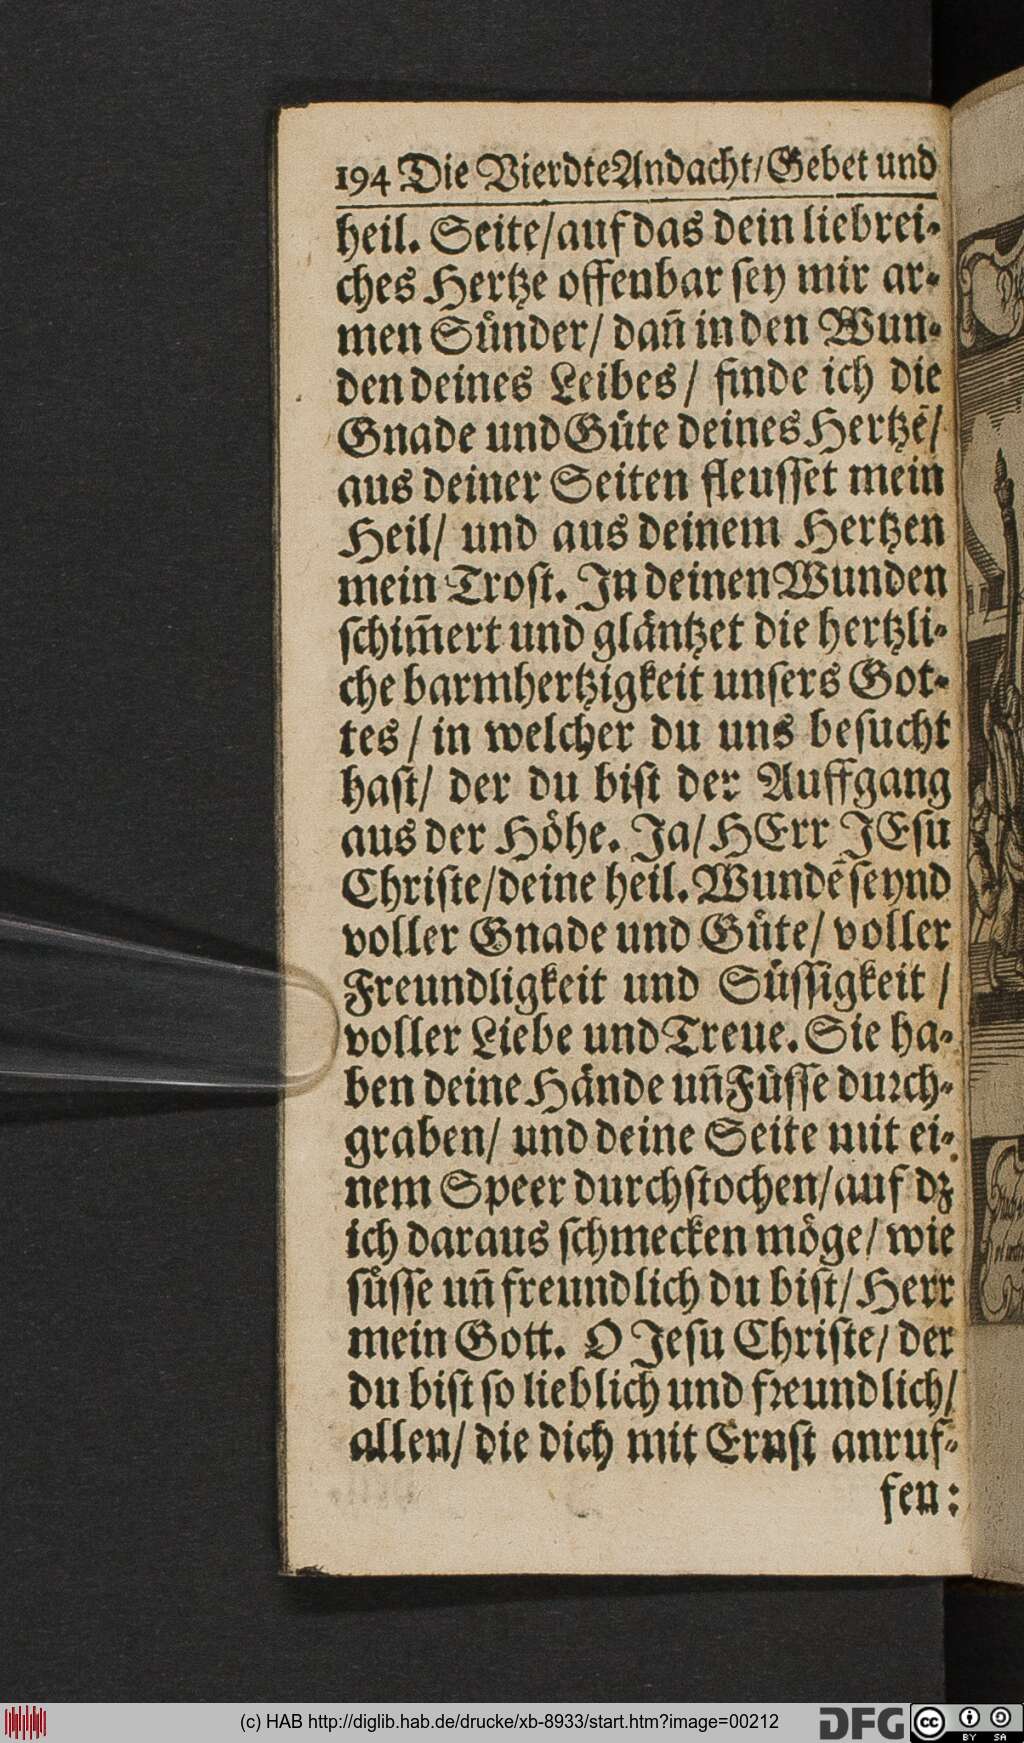 194 Die Vierdte Andacht/Gebet und
heil. Seite/auf das dein liebrei-
ches Hertze offenbar sey mir ar-
men Sünder/ dañ in den Wun-
den deines Leibes/ finde ich die
Gnade und Güte deines Hertzē/
aus deiner Seiten fleusset mein
Heil/ und aus deinem Hertzen
mein Trost. In deinen Wunden
schim̃ert und gläntzet die hertzli-
che barmhertzigkeit unsers Got-
tes / in welcher du uns besucht
hast/ der du bist der Auffgang
aus der Höhe. Ja/ HErr JEsu
Christe/deine heil. Wundē seynd
voller Gnade und Güte/ voller
Freundligkeit und Süssigkeit /
voller Liebe und Treue. Sie ha-
ben deine Hände uñ Füsse durch-
graben/ und deine Seite mit ei-
nem Speer durchstochen/auf dz
ich daraus schmecken möge/ wie
süsse uñ freundlich du bist/ Herr
mein Gott. O Jesu Christe/ der
du bist so lieblich und freundlich/
allen/ die dich mit Ernst anruf-
fen:
(c) HAB http://diglib.hab.de/drucke/xb-8933/start.htm?image=00212
DFG
cc
BY SA